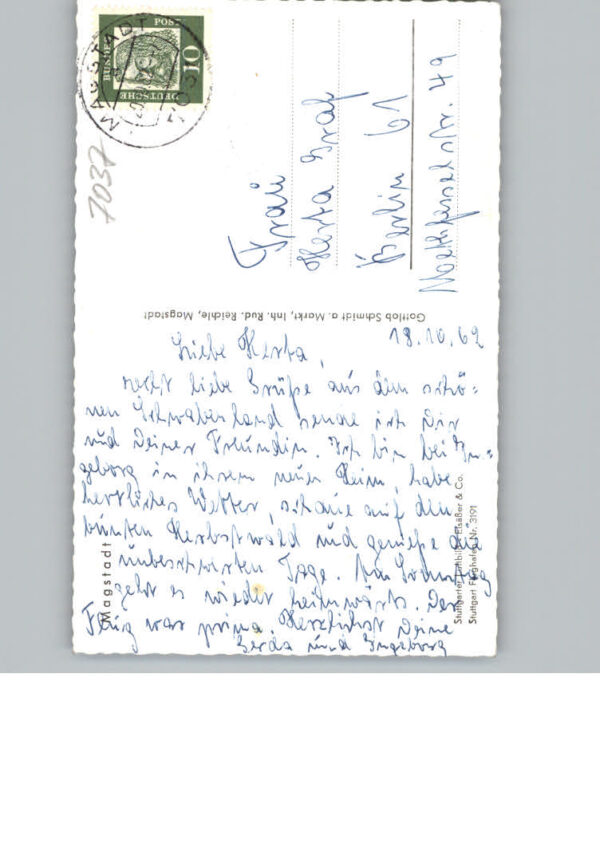 MAGSTADT
7031
DEUTSCHE
BUNDES
POST
10
7037
Frau
Herta Graf
Berlin 61
Monumentenstr. 49
Gottlob Schmidt a. Markt, Inh. Rud. Reichle, Magstadt
18.10.62
Liebe Herta,
recht liebe Grüße aus dem schö-
nen Schwabenland sende ich Dir
und Deiner Freundin. Ich bin bei In-
geborg in ihrem neuen Heim, habe
herrliches Wetter, schaue auf den
bunten Herbstwald und genieße die
unbeschwerten Tage. Am Sonntag
geht es wieder heimwärts. Der
Flug war prima. Herzlichst Deine
Gerda und Ingeborg
Magstadt
Stuttgarter Luftbild Elsäßer & Co.
Stuttgart Flughafen Nr. 3191